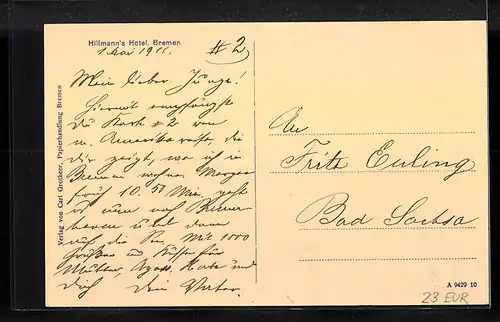 Hillmann's Hotel, Bremen
1 Mai 1911.
#2
Mein lieber Junge!
Hiermit empfängst
Du Karte #2 von
m. Amerikareise, die
Dir zeigt, wo ich in
Bremen wohne. Morgen
früh 10.50 Min. geht
es nach Bremer-
haven u. dann
auf die See. Mit 1000
Grüßen u. Küssen für
Mutter, und
Dich Dein Vater.
An
Fritz Euling
Bad Sachsa
Verlag von Carl Grotheer, Papierhandlung Bremen
A 9429 10
23 EUR